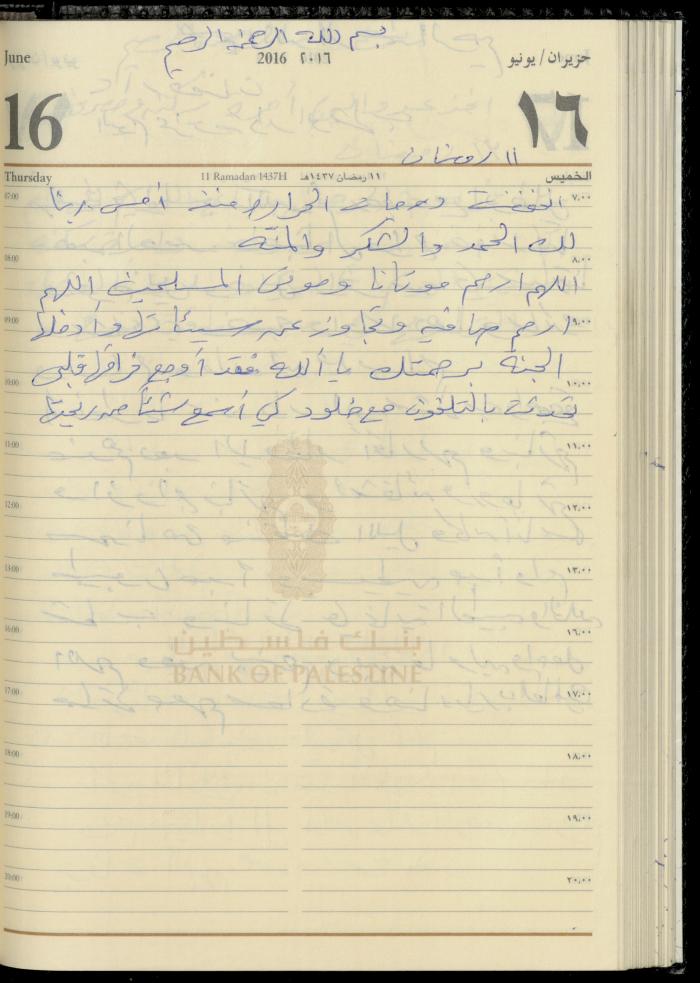 بسم الله الرحمن الرحيم
June 2016 ٢٠١٦ حزيران / يونيو
16 ١٦
١١ رمضان
Thursday 11 Ramadan 1437H ١١ رمضان ١٤٣٧هـ الخميس
07:00 ٧:٠٠
انخفضت درجات الحرارة منذ أمس ربنا
لك الحمد والشكر والمنّة
08:00 ٨:٠٠
اللهم ارحم موتانا وموتى المسلمين اللهم
09:00 ٩:٠٠
ارحم صافيه وتجاوز عن سيئاتها وأدخلها
الجنة برحمتك يا ألله فقد أوجع فراقها قلبي
10:00 ١٠:٠٠
تحدثت بالتلفون مع خلود كي أسمع شيئاً من
11:00 ١١:٠٠
12:00 ١٢:٠٠
13:00 ١٣:٠٠
16:00 ١٦:٠٠
بنك فلسطين
BANK OF PALESTINE
17:00 ١٧:٠٠
18:00 ١٨:٠٠
19:00 ١٩:٠٠
20:00 ٢٠:٠٠